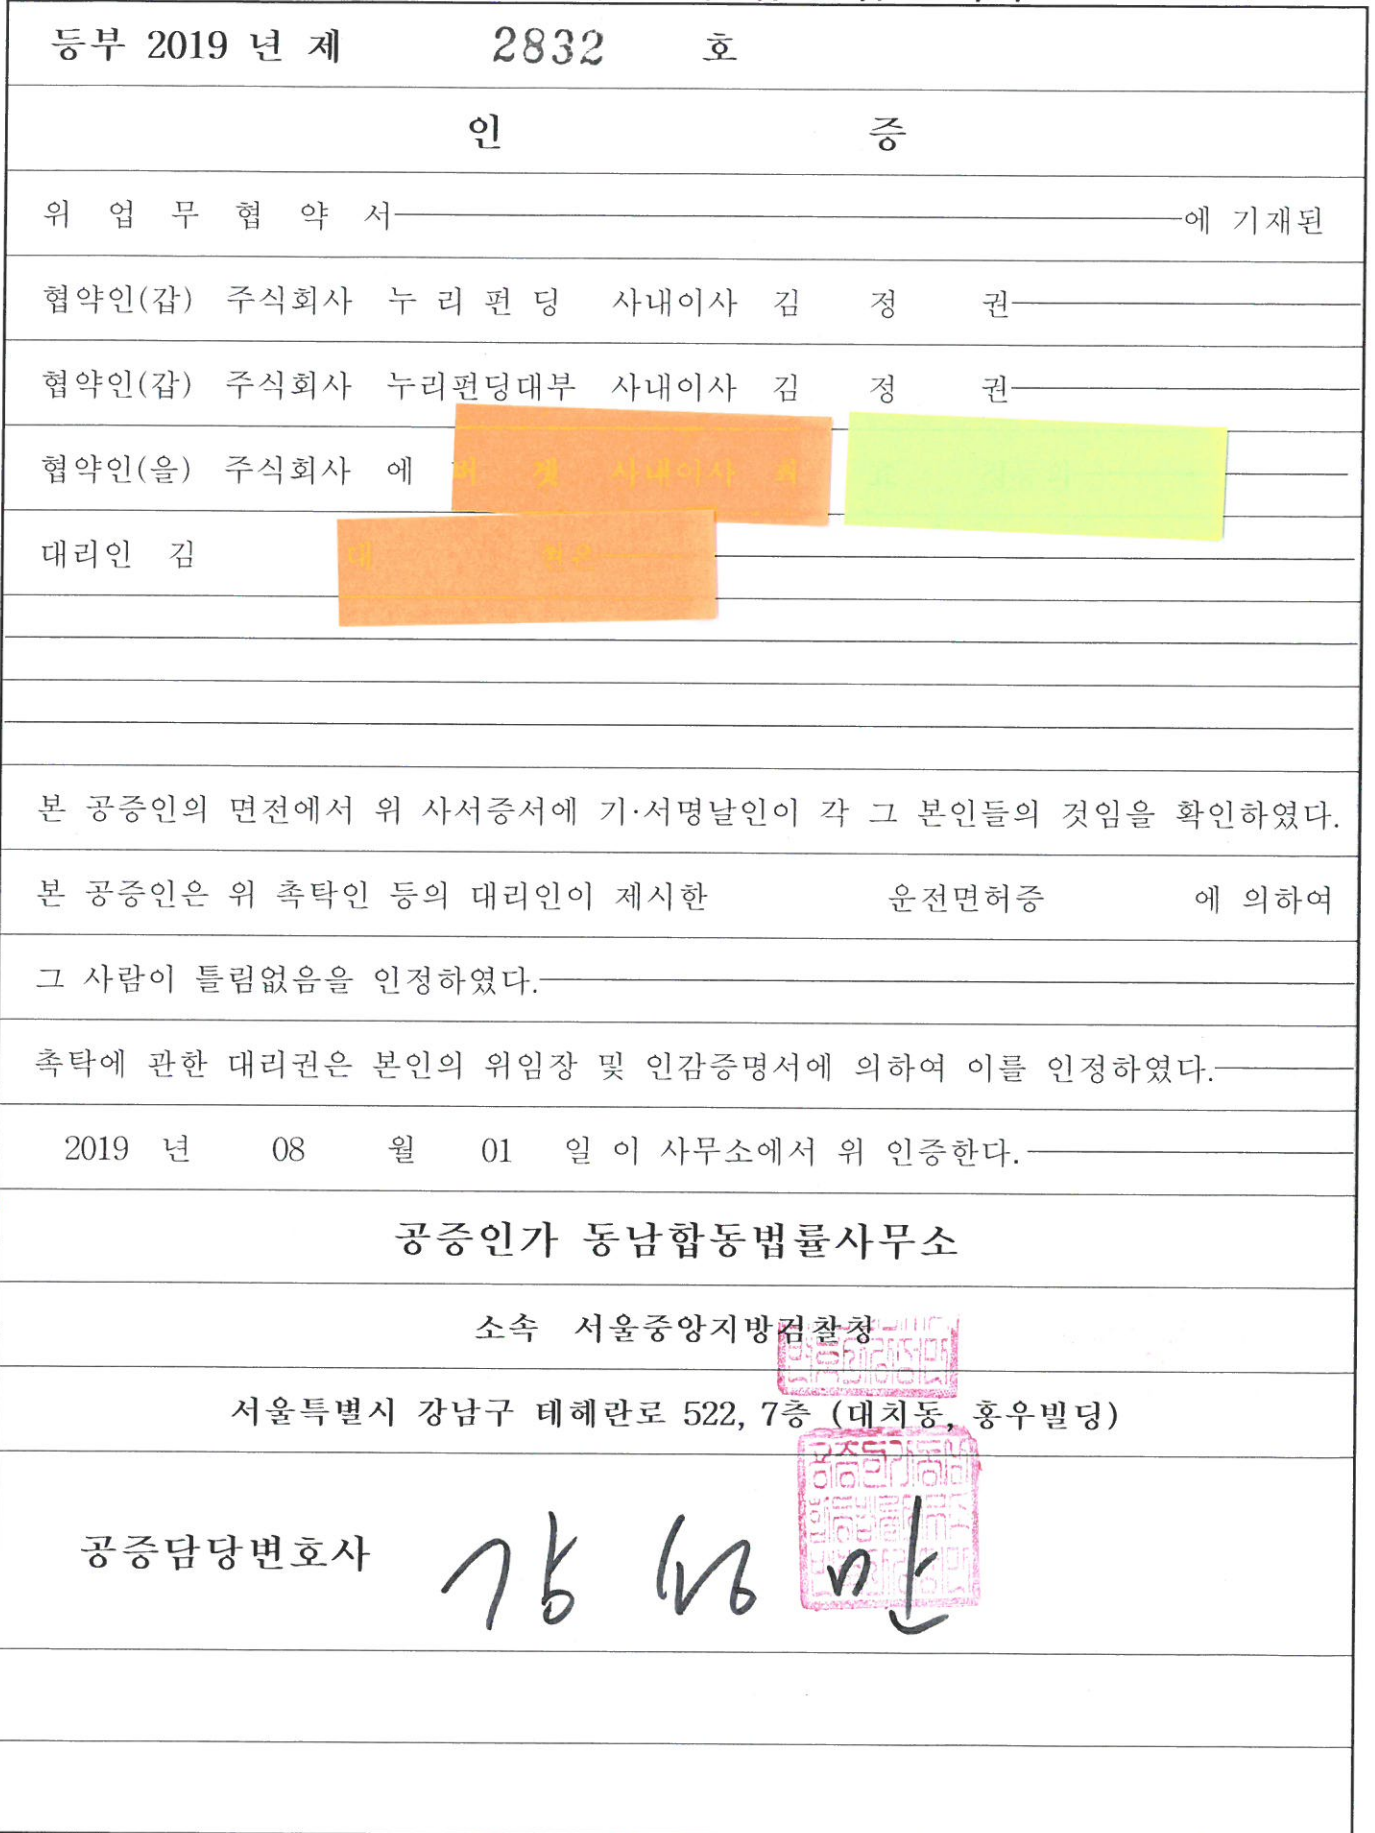 등부 2019 년 제 2832 호
인 증
위 업 무 협 약 서 에 기재된
협약인(갑) 주식회사 누 리 펀 딩 사내이사 김 정 권
협약인(갑) 주식회사 누리펀딩대부 사내이사 김 정 권
협약인(을) 주식회사 에
대리인 김
본 공증인의 면전에서 위 사서증서에 기·서명날인이 각 그 본인들의 것임을 확인하였다.
본 공증인은 위 촉탁인 등의 대리인이 제시한 운전면허증 에 의하여
그 사람이 틀림없음을 인정하였다.
촉탁에 관한 대리권은 본인의 위임장 및 인감증명서에 의하여 이를 인정하였다.
2019 년 08 월 01 일 이 사무소에서 위 인증한다.
공증인가 동남합동법률사무소
소속 서울중앙지방검찰청
서울특별시 강남구 테헤란로 522, 7층 (대치동, 홍우빌딩)
공증담당변호사